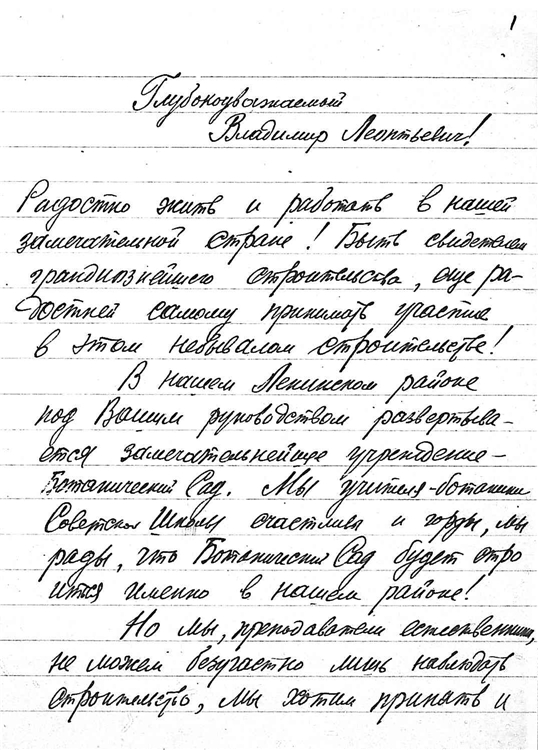 1
Глубокоуважаемый
Владимир Леонтьевич!
Радостно жить и работать в нашей
замечательной стране! Быть свидетелем
грандиознейшего строительства, еще ра-
достней самому принимать участие
в этом небывалом строительстве!
В нашем Ленинском районе
под Вашим руководством развертыва-
ется замечательнейшее учреждение-
Ботанический Сад. Мы учителя-ботаники
Советской Школы счастливы и горды, мы
рады, что Ботанический Сад будет стро
ится именно в нашем районе!
Но мы, преподаватели естественники,
не можем безучастно лишь наблюдать
строительство, мы хотим принять и